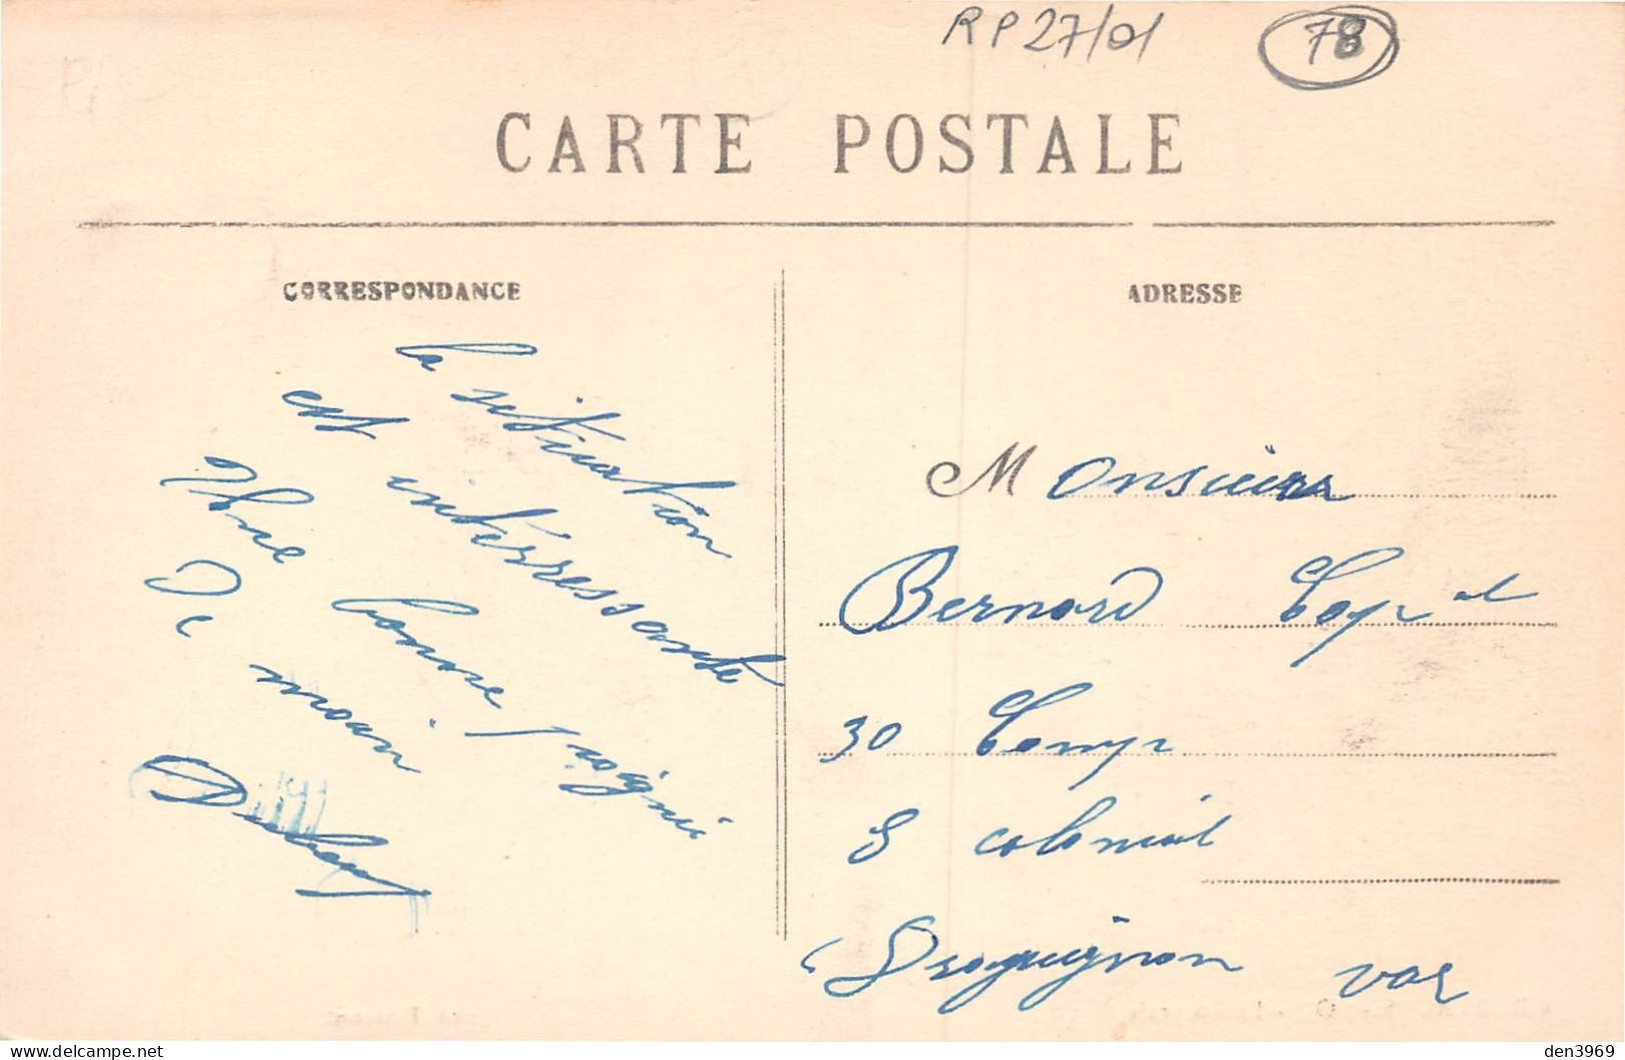 RP 27/01 78
CARTE POSTALE
CORRESPONDANCE
la situation
est intérressante
Une bonne poignée
De main
ADRESSE
Monsieur
Bernard Capral
30 Comp
8 colonial
Draguignon var
den3969